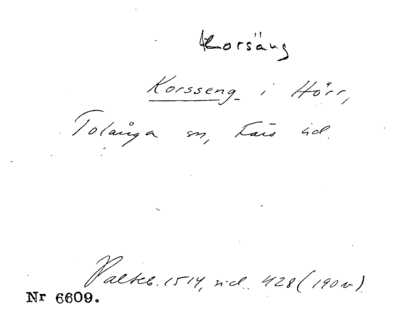 Korsäng
Korsseng i Hörr,
Tolånga sn, Färs hd.
Palteb. 1514, sid. 428 (190 v).
Nr 6609.